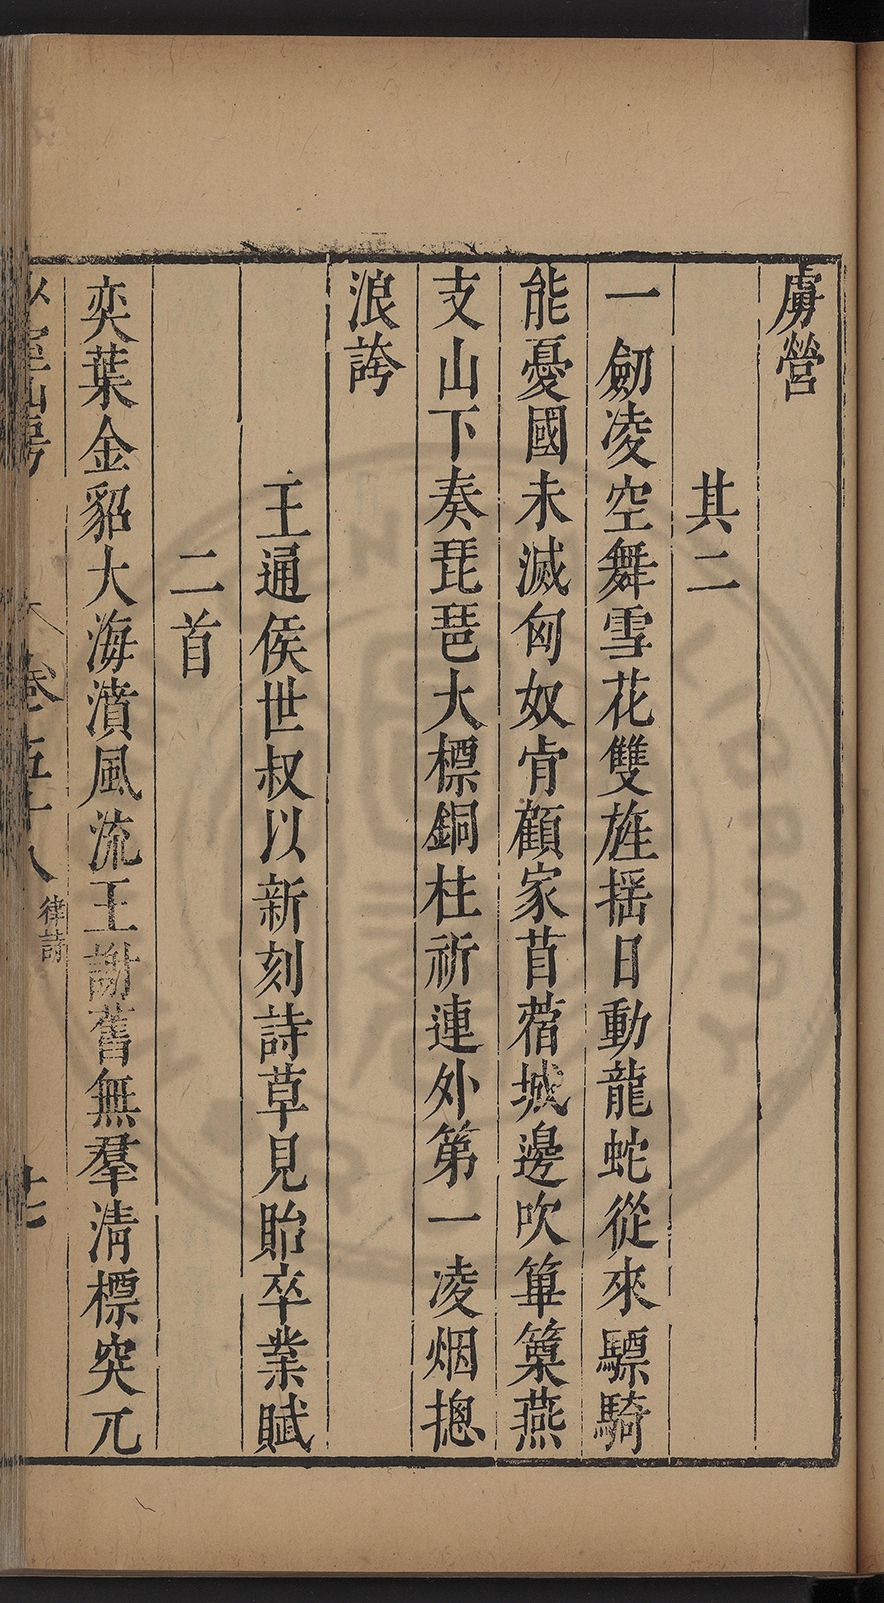 虜營
其二
一劒凌空舞雪花雙旌揺日動龍蛇從來驃騎
能憂國未滅匈奴肯顧家苜蓿城邊吹篳篥燕
支山下奏琵琶大標銅柱祈連外第一凌烟摠
浪誇
王通侯世叔以新刻詩草見貽卒業賦
二首
奕葉金貂大海濆風流王謝舊無羣淸標突兀
山房 卷五十八 律詩